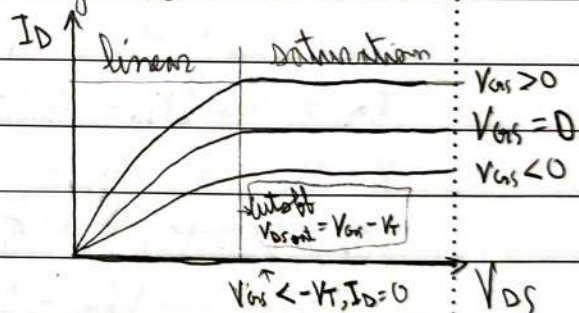 I_D
linear saturation
V_GS > 0
V_GS = 0
V_GS < 0
cutoff
V_DS sat = V_GS - V_T
V_GS < -V_T, I_D = 0
V_DS